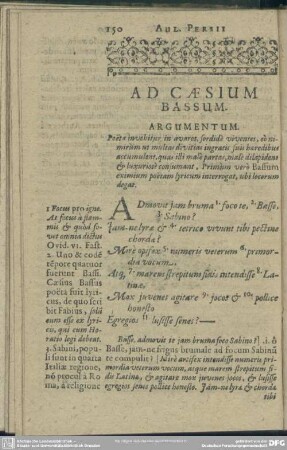 150 AUL. PERSII
AD CÆSIUM
BASSUM.
ARGUMENTUM.
Poëta invehitur in avaros, sordidè viventes, & nu-
marum ut multas divitias ingratis suis heredibus
accumulent, quas illi malè partas, malè dilapident
& luxuriosè consumant. Primùm verò Bassum
eximium poëtam lyricum interrogat, ubi locorum
degat.
ADmovit jam bruma 1. foco te, 2. Basse,
3. Sabino?
Jamne lyra & 4. tetrico vivunt tibi pectine
chordæ?
Mire opifex 5. numeris veterum 6. primor-
dia vocum,
Atq; 7. marem strepitum fidis intendisse 8. La-
tinæ,
Mox juvenes agitare 9. jocos & 10. pollice
honesto
Egregios 11. lusisse senes?
1 Focus pro igne.
2. Uno & eodē
tēpore quatuor
fuerunt Bassi.
Cæsius Bassus
poëta fuit lyri-
cus, de quo scri
bit Fabius, soliū
eum esse ex lyri-
cis, qui cum Ho-
ratio legi debeat.
3. Sabini, popu-
li fuerūt quarta
Italiæ regione,
nō procul à Ro-
ma, à religione
Basse, admovit te jam bruma foco Sabino? i. ô
Basse, jam-ne frigus brumale ad focum Sabinū
te compulit? Mirè artifex intendisse numeris pri-
mordia veterum vocum, atque marem strepitum fi-
dis Latinæ, & agitare mox juvenes jocos, & lusisse
egregios senes pollice honesto. Jam-ne lyra & chordæ
tibi